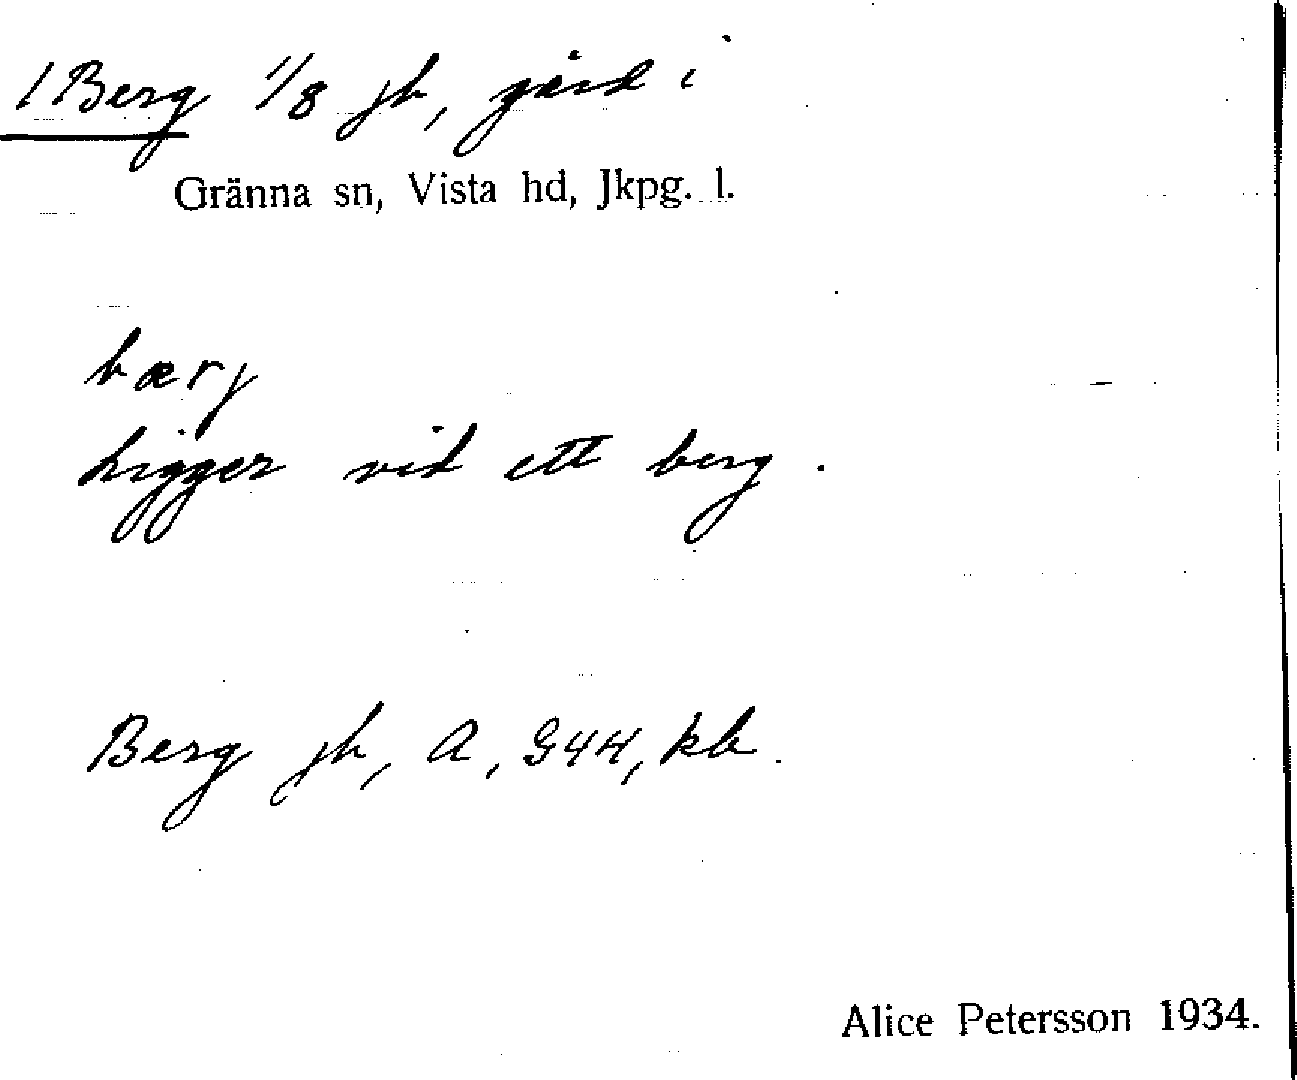 1 Berg 1/8 jb, gård i
Gränna sn, Vista hd, Jkpg. l.
bærj
Ligger vid ett berg.
Berg jb, A, G4H, kb.
Alice Petersson 1934.